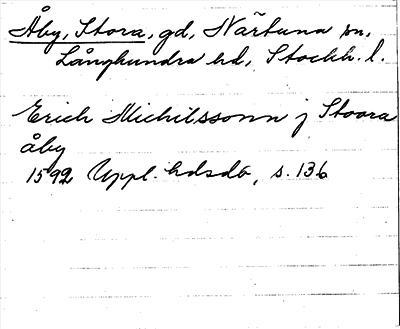 Åby, Stora, gd, Närtuna sn,
Långhundra hd, Stockh. l.
Erich Michilssonn j Stoora
åby
1592 Uppl. hdsdb, s. 136